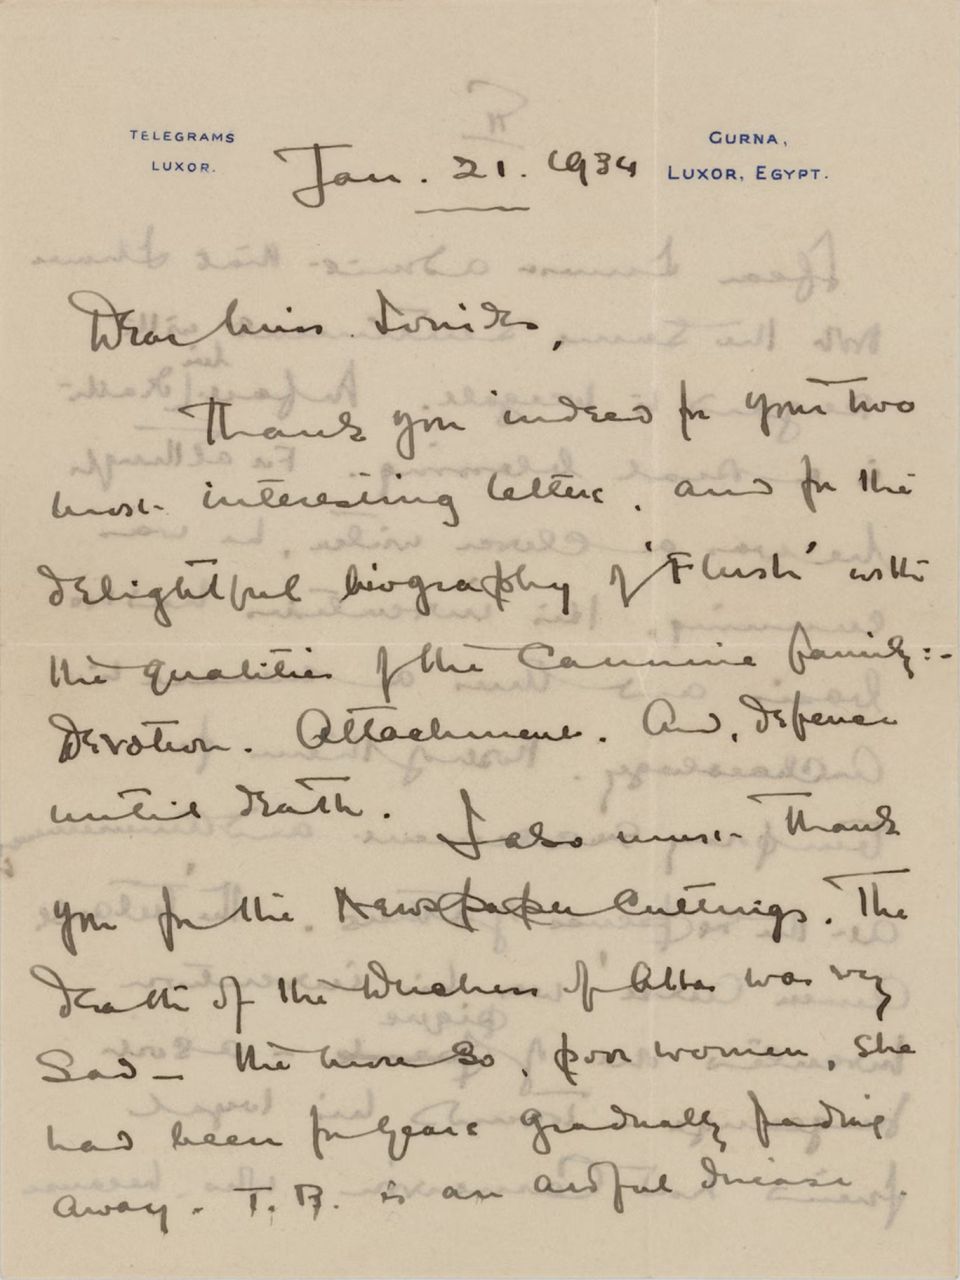 TELEGRAMS
LUXOR.
GURNA,
LUXOR, EGYPT.
Jan. 21. 1934
Dear Miss Ionides,
Thank you indeed for your two
most interesting letters, and for the
delightful biography of 'Flush' with
the qualities of the Cannine family:-
Devotion. Attachment. And, defence
until death. I also must thank
you for the Newspaper Cuttings. The
death of the Duchess of Alba was very
Sad — the more So, poor women, She
had been for years gradually fading
away. T.B. is an awful disease.